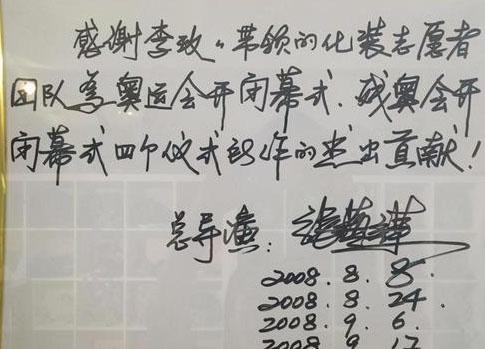 感谢李玫带领的化装志愿者
团队为奥运会开闭幕式、残奥会开
闭幕式四个仪式所作的杰出贡献!
总导演: 张艺谋
2008.8.8.
2008.8.24.
2008.9.6.
2008.9.17